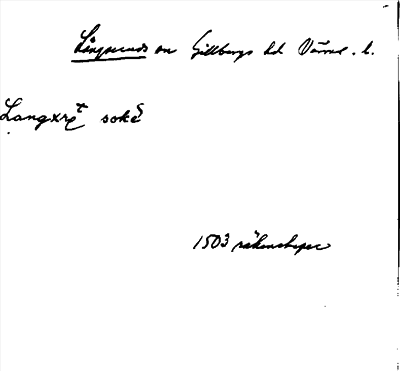 Långserud sn Gillbergs hd Värml. l.
Langxrֶet sokē
1503 räkenskaper